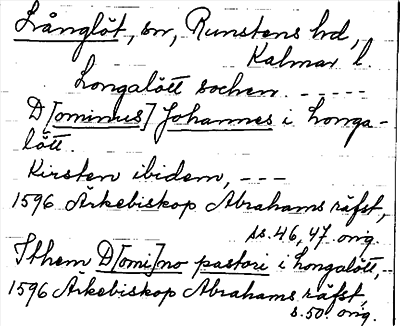 Långlöt, sn, Runstens hd,
Kalmar l.
Longalött sochen. - - - - -
D[ominus] Johannes i Longa-
lött.
Kirsten ibidem, - - -
1596 Ärkebiskop Abrahams räfst,
ss. 46, 47 orig.
Ithem D[omi]no pastori i Longalött, -
1596 Ärkebiskop Abrahams räfst,
s. 50. orig.